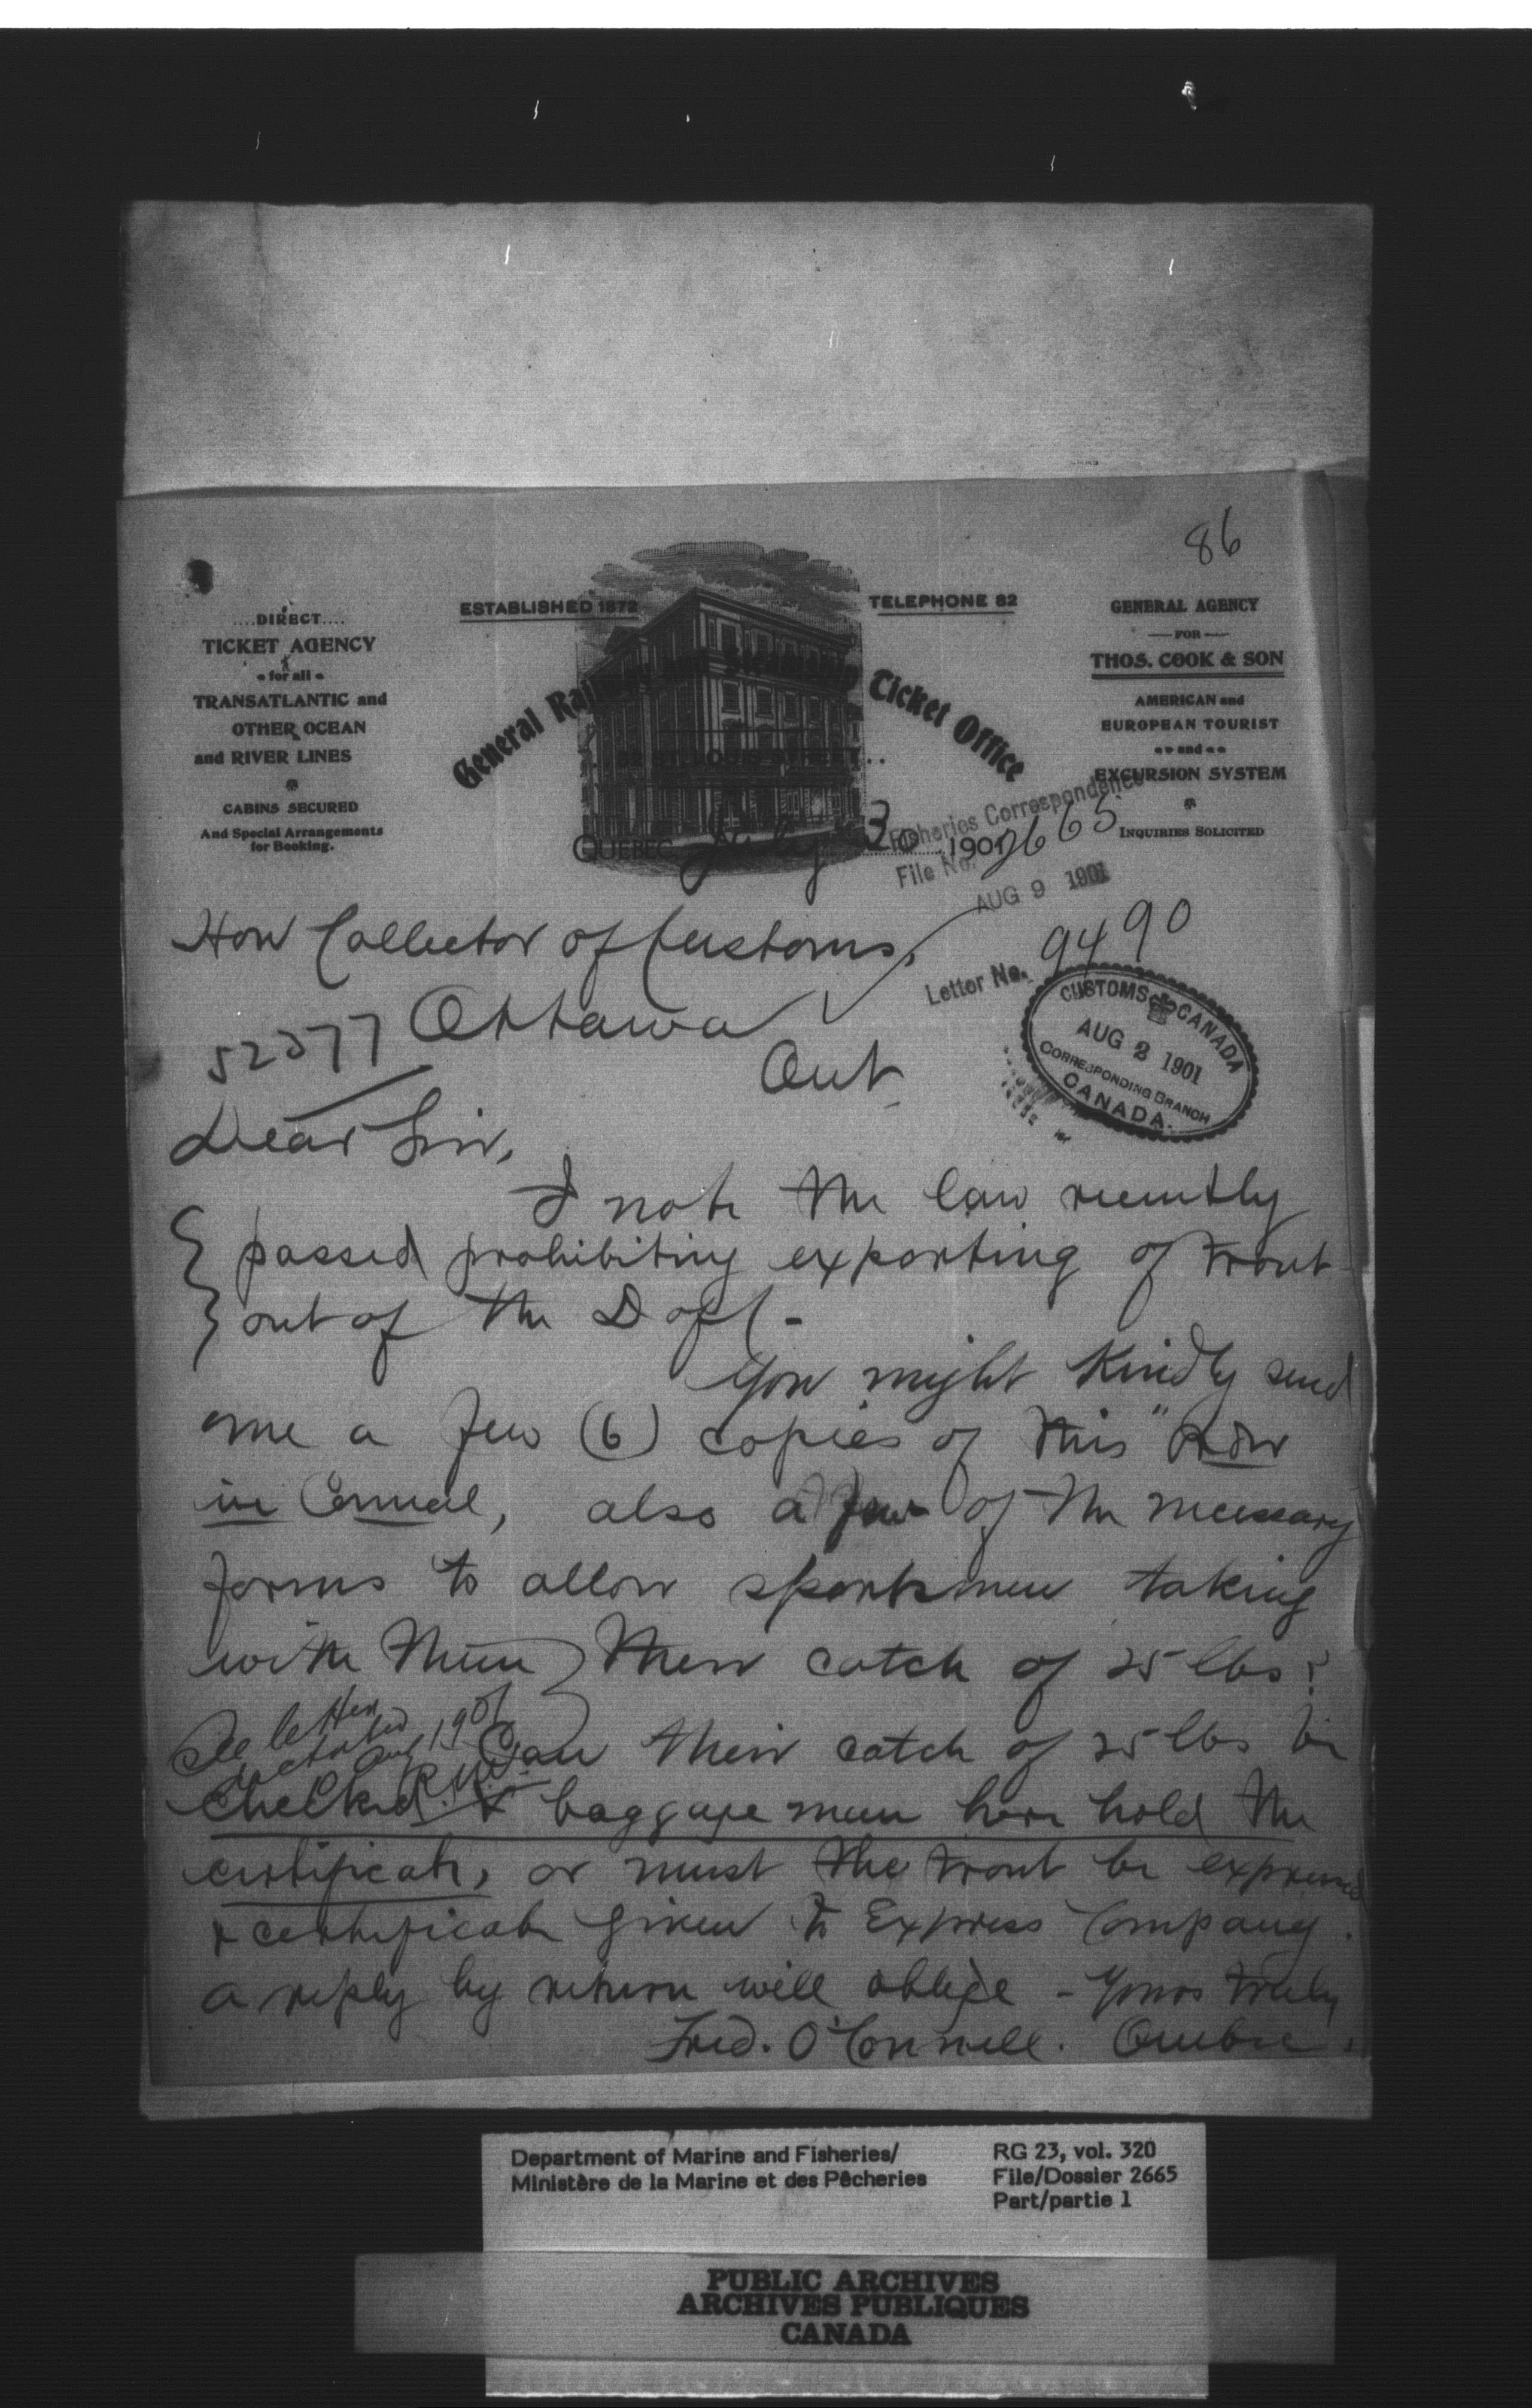 86
....DIRECT....
TICKET AGENCY
for all
TRANSATLANTIC and
OTHER OCEAN
and RIVER LINES
CABINS SECURED
And Special Arrangements
for Booking.
ESTABLISHED 1872
TELEPHONE 82
General Railway and Steamship Ticket Office
ST. LOUIS STREET..
GENERAL AGENCY
FOR
THOS. COOK & SON
AMERICAN and
EUROPEAN TOURIST
and
EXCURSION SYSTEM
INQUIRIES SOLICITED
QUEBEC, July 30 1901
Fisheries Correspondence
File No. 2665
AUG 9 1901
Letter No. 9490
CUSTOMS CANADA
AUG 2 1901
CORRESPONDING BRANCH
CANADA.
Hon Collector of Customs,
52377 Ottawa
Ont
Dear Sir,
I note the law recently
passed prohibiting exporting of trout
out of the
You might kindly send
me a few (6) copies of this "Order
in Council, also a few of the necessary
forms to allow sportsmen taking
with them their catch of 25 lbs?
See letter
Aug 1901
Can their catch of 25 lbs be
checked & baggage men here hold the
certificate, or must the trout be expressed
& certificate given to Express Company.
a reply by return will oblige - Yours truly
Fred. O'Connell. Quebec.
Department of Marine and Fisheries/
Ministère de la Marine et des Pêcheries
RG 23, vol. 320
File/Dossier 2665
Part/partie 1
PUBLIC ARCHIVES
ARCHIVES PUBLIQUES
CANADA